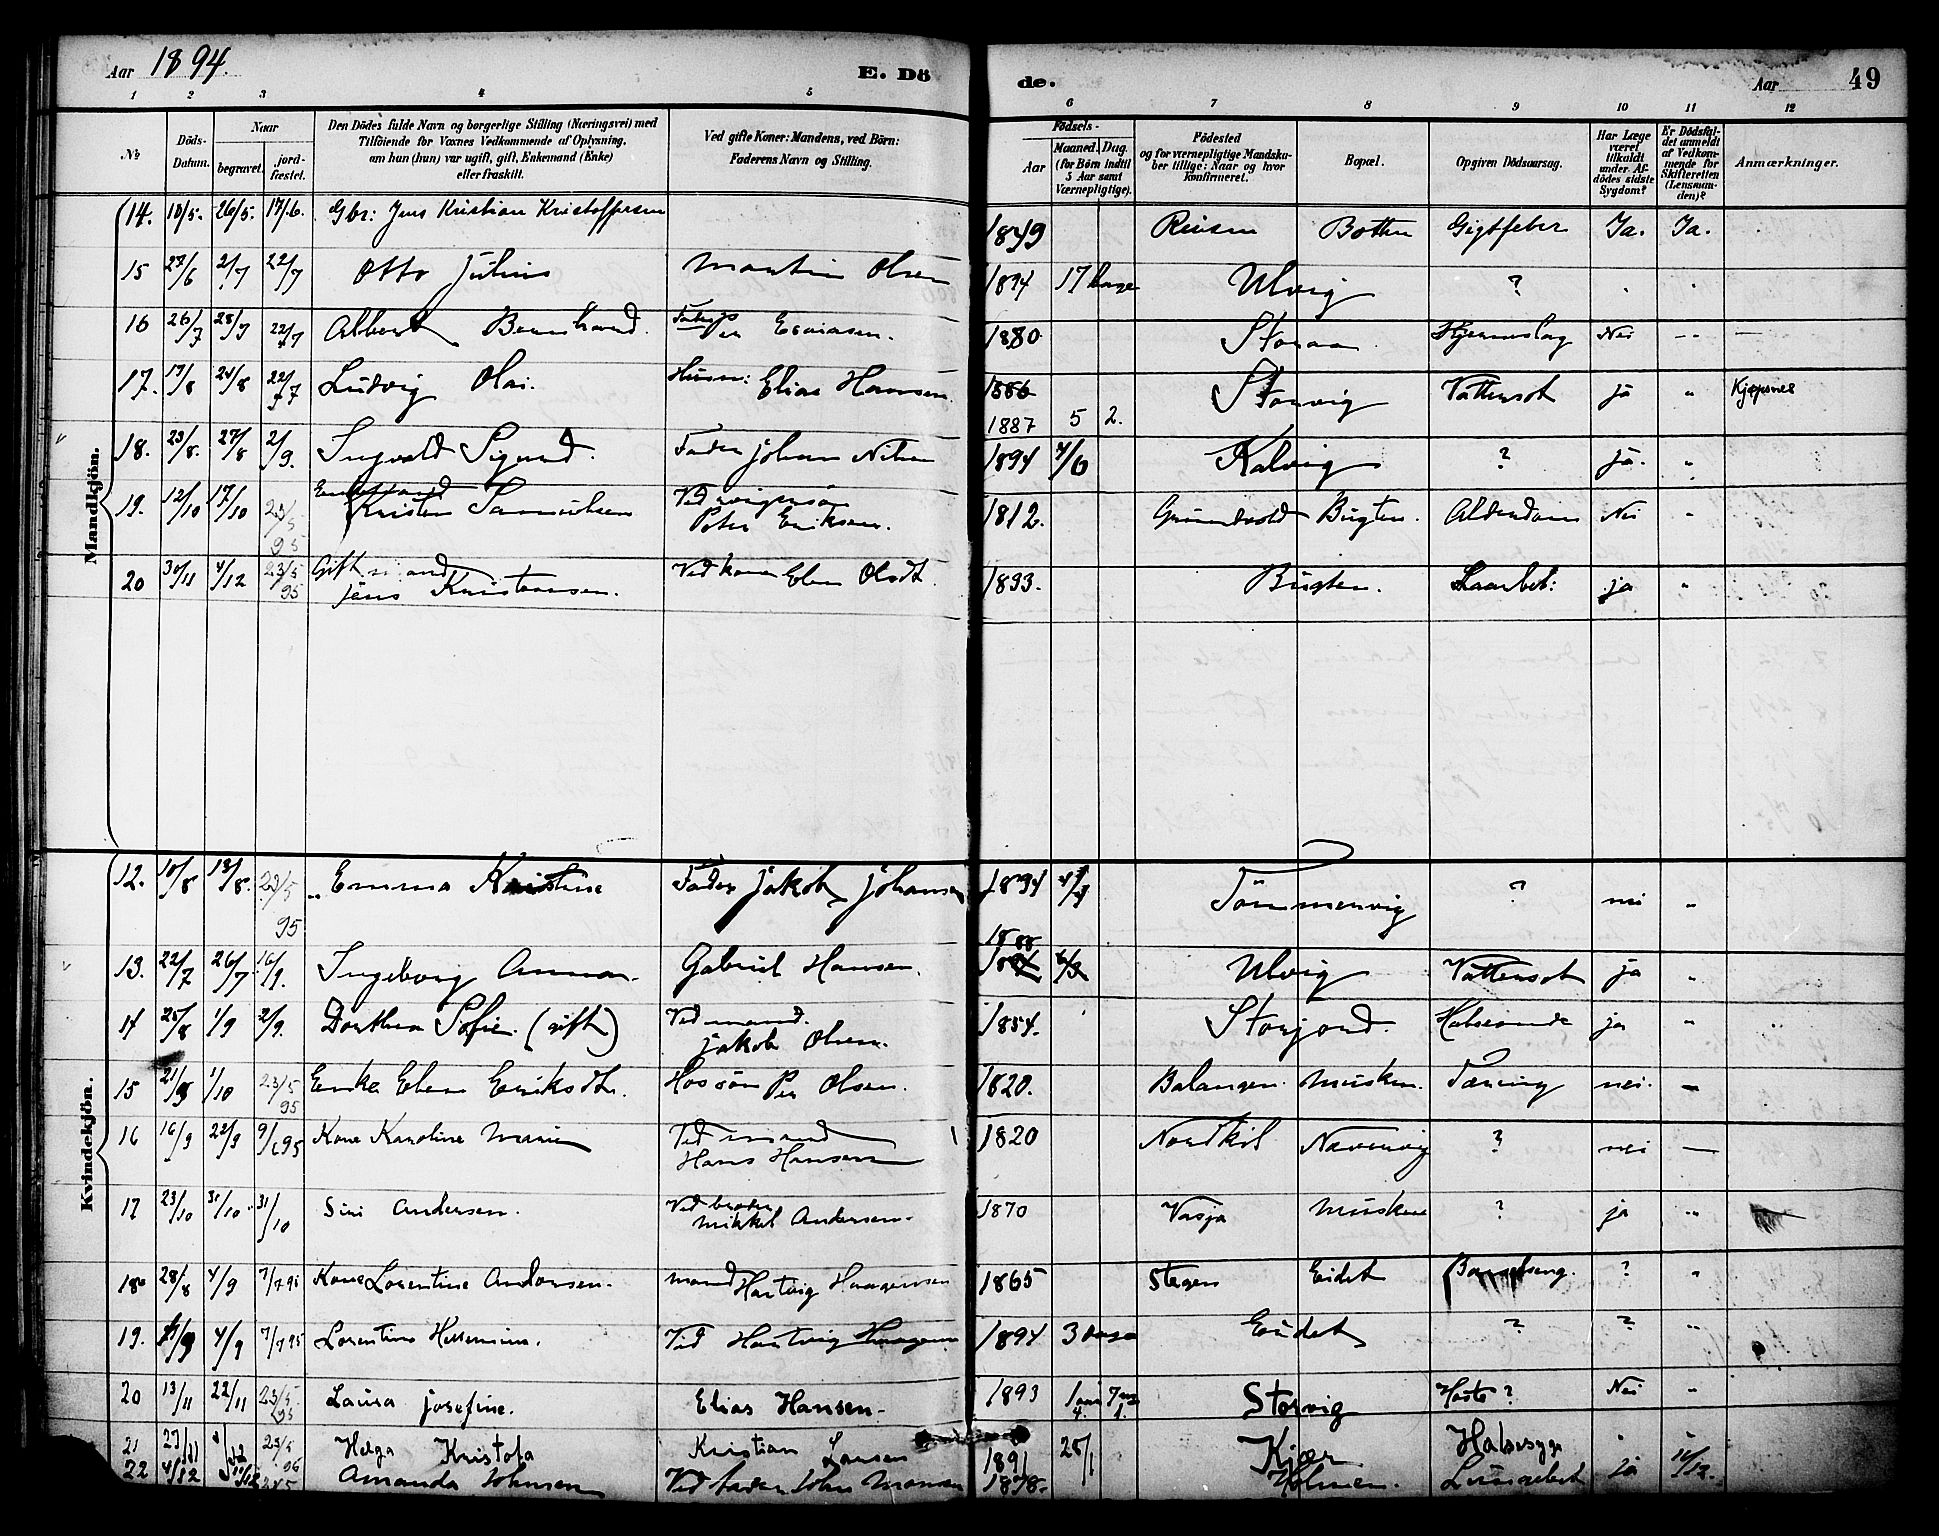 Aar 1894. E. Dö
de. Aar 49
1 2 3 4 5 6 7 8 9 10 11 12
No
Döds-Datum.
Naar
begravet.
jord-fæstet.
Den Dödes fulde Navn og borgerlige Stilling (Næringsvei) med
Tilföiende for Voxnes Vedkommende af Oplysning,
om hun (hun) var ugift, gift, Enkemand (Enke)
eller fraskilt.
Ved gifte Koner: Mandens, ved Börn:
Faderens Navn og Stilling.
Födsels-
Aar
Maaned. Dag.
(for Börn indtil
5 Aar samt
Værnepligtige).
Födested
og for værnepligtige Mandska-
ber tillige: Naar og hvor
konfirmeret.
Bopæl.
Opgiven Dödsaarsag.
Har Læge
været
tilkaldt
under Af-
dödes sidste
Sygdom?
Er Dödsfal-
det anmeldt
af Vedkom-
mende for
Skifteretten
(Lensman-
den)?
Anmærkninger.
Mandkjön.
14. 18/5. 26/5. 17/6. Gbr: Jens Kristian Kristoffersen 1849 Botten Gigtfeber Ja. Ja.
15 23/6 2/7 22/7 Otto Julius Martin Olsen 1894 17 Dage Ulvig ?
16 26/7 28/7 22/7 Albert Bernhard. Fader Per Esaiasen. 1880 Storaa Hjerneslag Nei
17. 13/8 24/8 22/7 Ludvig Olai. Husm: Elias Hansen. 1886 Storvig Vattersot ja " Kjøpsnes
1887 5 2.
18. 23/8. 27/8 2/9. Ingvald Sigurd. Fader Johan Nilsen 1894 4/6 Kalvig ? ja. "
19. 12/10 17/10 23/5 95 Enkemand Kristen Samuelsen Ved svigersøn Peter Eriksen. 1812. Grundvold Bugten. Alderdom Nei "
20 30/11 4/12 23/5 95 Gift mand Jens Kristensen. Ved kone Elen Olsdt. 1833. Bugten. ja "
Kvindekjön.
12. 10/8 13/8. 23/5 95 Emma Kristine Fader Jakob Johansen 1894 Tömmervig ? nei "
13. 22/7 26/7 16/9. Ingeborg Anna. Gabriel Hansen. 1888 Ulvig Vattersot ja "
14 25/8 1/9 2/9. Dorthea Sofie. (gift) Ved mand. Jakob Olsen. 1854. Storjord. ja "
15 21/9 1/10 23/5 95 Enke Elen Eriksdt. Hos søn Per Olsen. 1820. Balangen. Musken. Tæring nei. —
16 16/9 22/9 95 Kone Karoline Marie Ved mand Hans Hansen 1820 Nordkil Nævervig ? nei —
17 23/10 31/10. 31/10 Siri Andersen. Ved broder Mikkel Andersen. 1870 Vasja Musken ? ja "
18 28/8 4/9 7/7 95 Kone Lorentine Andersen. mand Hartvig Haagensen 1865 Stegen Eidet Barselseng. ? "
19. 4/9 7/7 95 Lorentine Hermine. Ved Hartvig Haagensen 1894 3 Dage Eidet ? ? "
20 13/11 22/11 23/5 95 Laura Josefine. Elias Hansen. 1893 Storvig Hoste? Nei "
21 27/11 Helga Kristofa Kristian Larsen 1891 28/1 Kjær Halssyge
22 4/12 Amanda Johnsen Ved fader John Monsen 1878. Holmen. ja